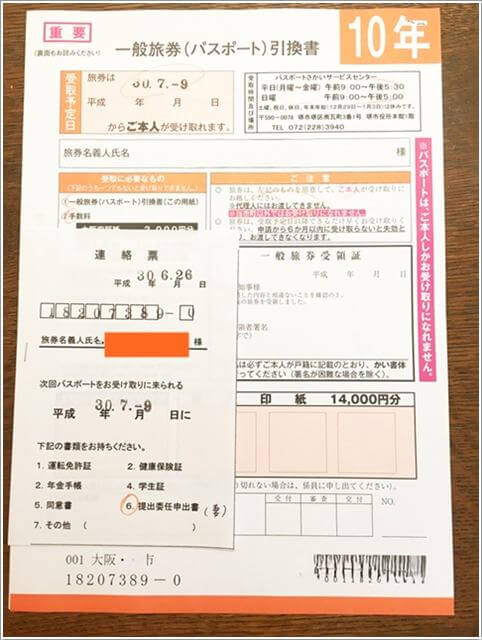 重要
(裏面もお読みください)
一般旅券(パスポート)引換書
10年
受取予定日
旅券は
30.7.-9
平成 年 月 日
からご本人が受け取れます。
受取時間及び場所
パスポートさかいサービスセンター
平日(月曜～金曜) 午前9:00～午後5:30
日曜 午前9:00～午後5:00
土曜、祝日、休日、年末年始(12月29日～1月3日)は休みです。
〒590-0078 堺市堺区南瓦町3番1号 堺市役所本館1階
TEL 072(228)3940
旅券名義人氏名 様
受取に必要なもの
(下記のうち一つでもないと受け取りできません。)
①一般旅券(パスポート)引換書(この用紙)
②手数料
ご注意
○ 旅券は、左記のものを用意して、ご本人が受け取りに
お越しください。
※代理人にはお渡しできません。
申請から6か月以内に受け取らないと失効と
、お渡しできなくなります。
※パスポートは、ご本人しかお受け取りになれません。
一般旅券受領証
平成 年 月 日
知事様
領者署名
は必ずご本人が戸籍に記載のとおり、かい書体
ってください(署名が困難な場合を除く)。
印紙 14,000円分
切れない場合は、係員に申し出てください)
受付 審査 交付
NO.
連絡票
平成 30.6.26 日
18207389-0
旅券名義人氏名 様
次回パスポートをお受け取りに来られる
平成 30.7.-9 日に
下記の書類をお持ちください。
1. 運転免許証 2. 健康保険証
2. 年金手帳 4. 学生証
5. 同意書 6. 提出委任申出書
7. その他 (
001 大阪・ 市
18207389-0